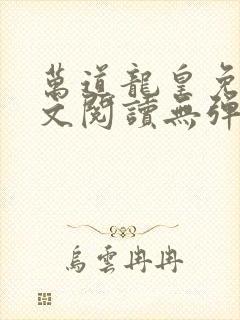 萬道龍皇免
文閱讀無彈
烏雲冉冉